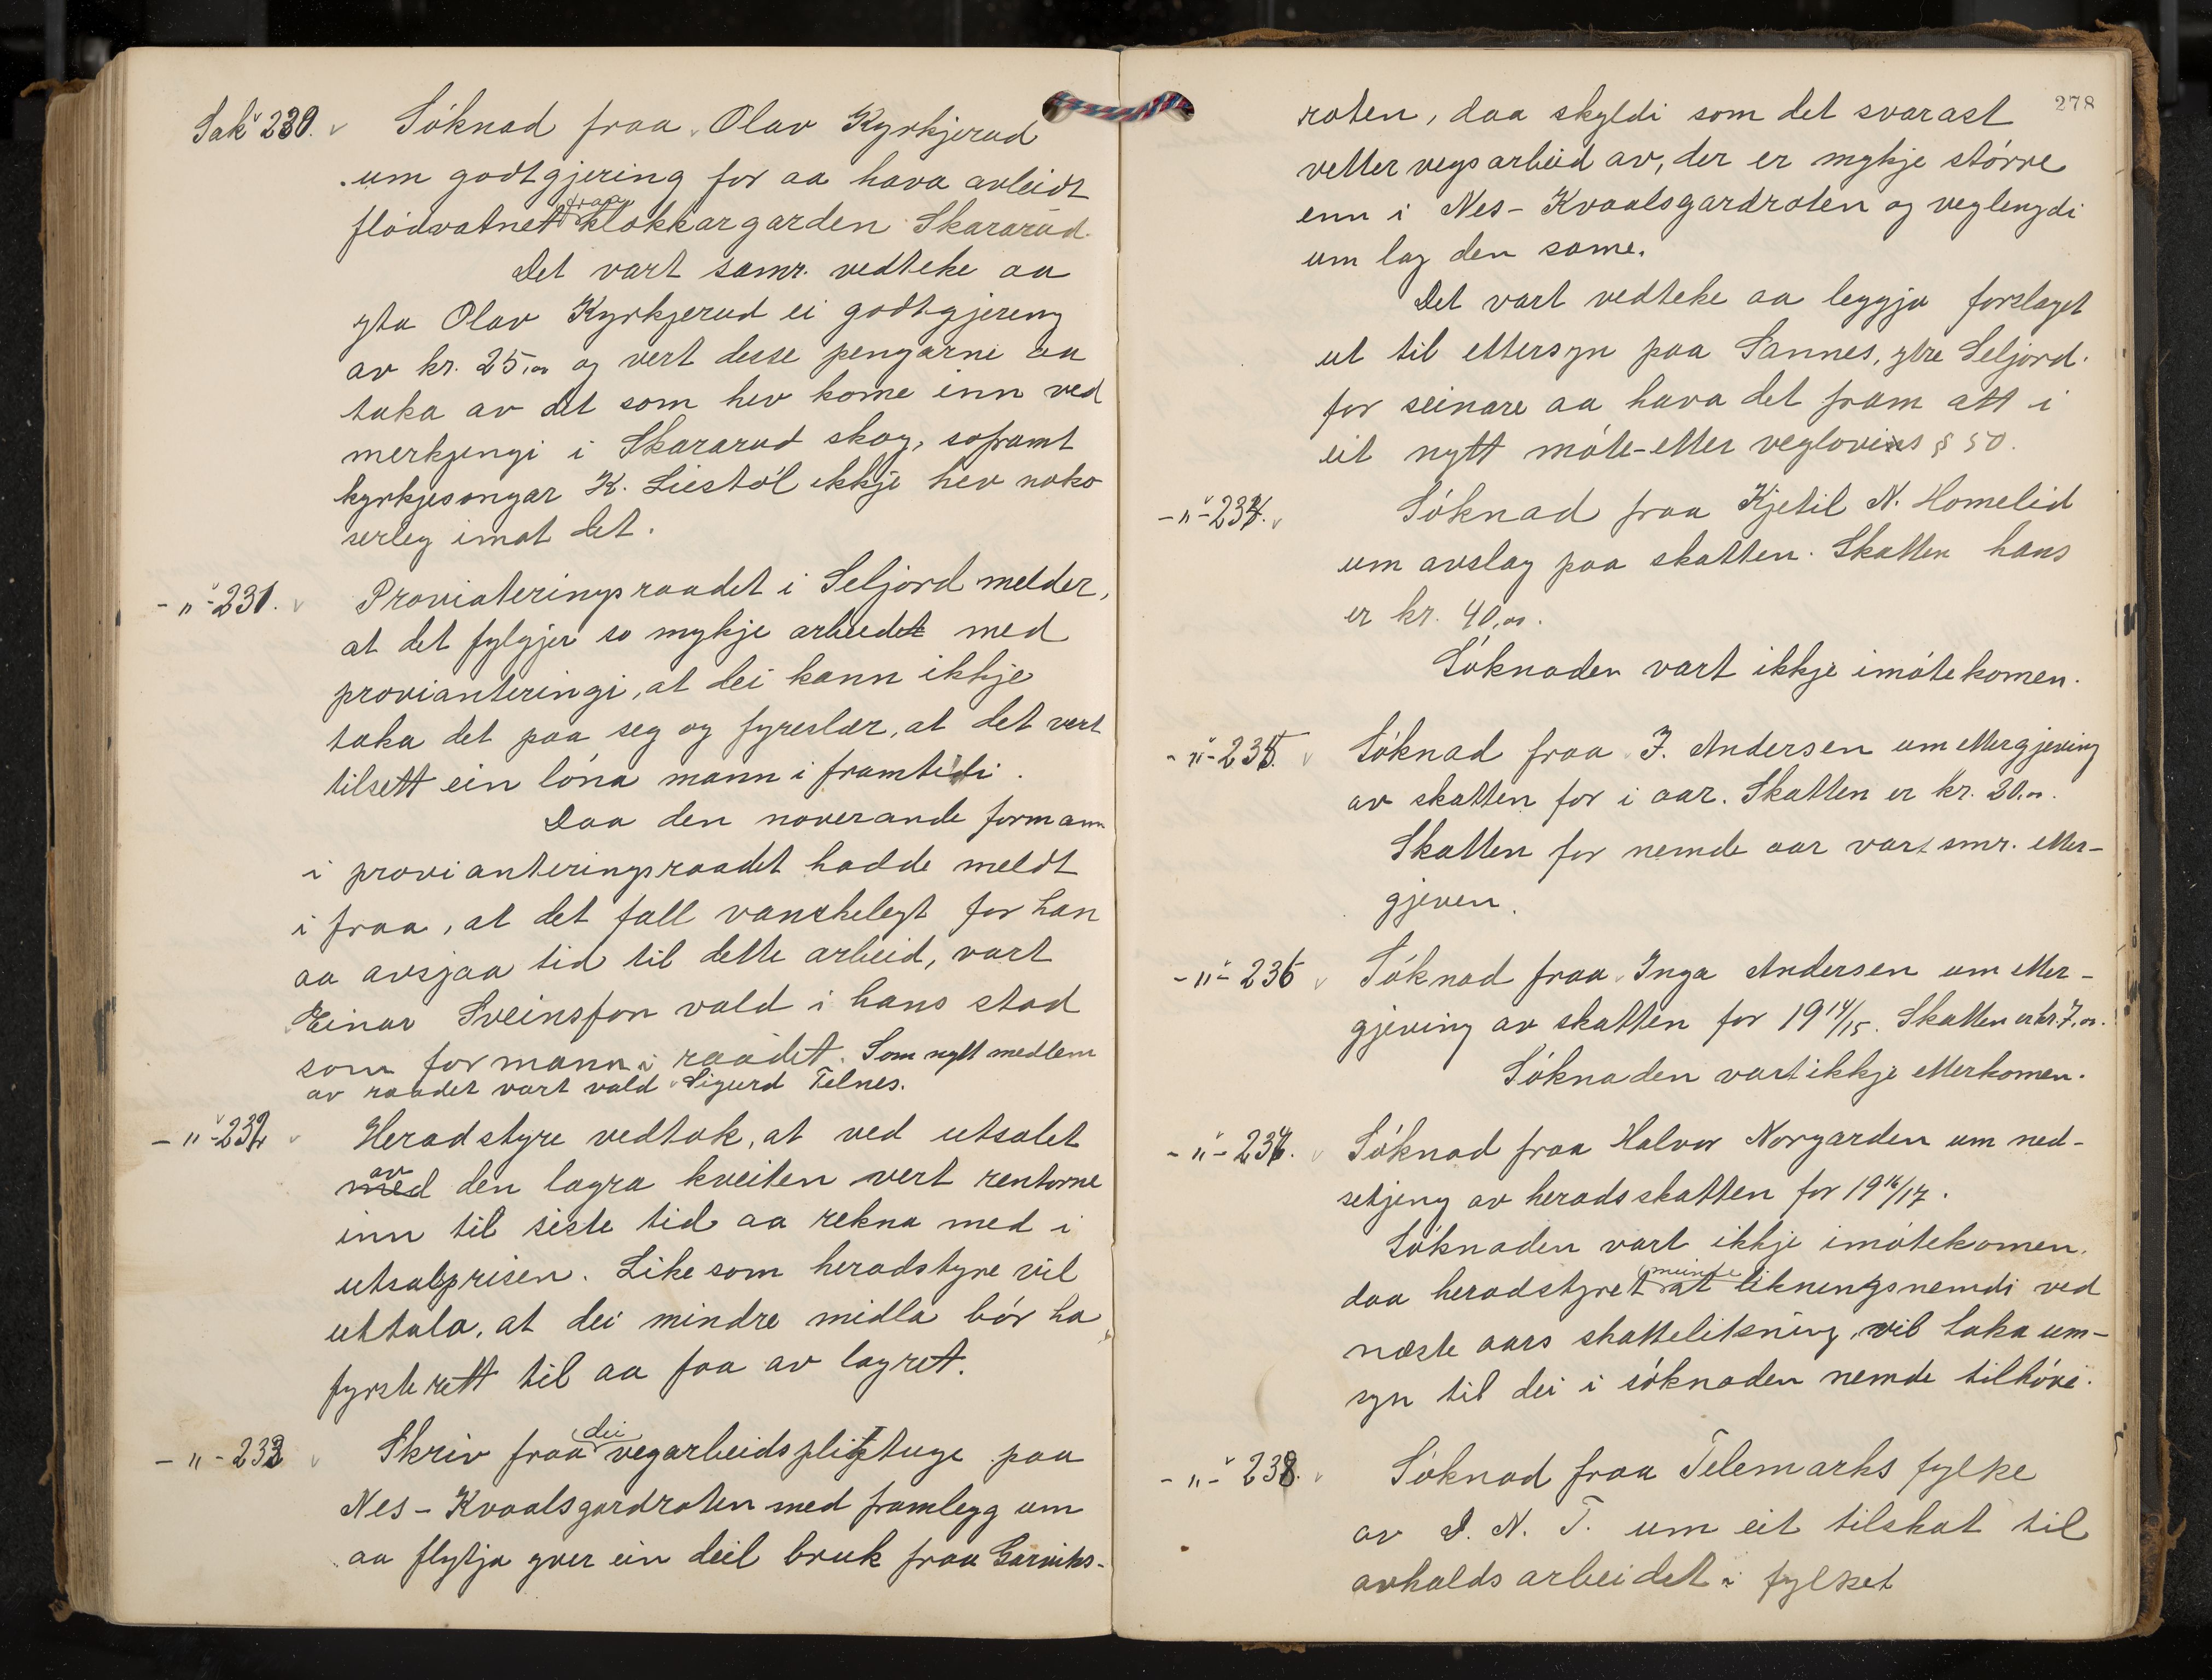 Sak 230. Söknad fraa Olav Kyrkjerud
um godtgjering for aa hava avleidt
flödvatnet fraa klokkargarden Skararud.
Det vart samr. vedteke aa
yta Olav Kyrkjerud ei godtgjereng
av kr. 25,00 og vert desse pengarne aa
taka av det som hev kome inn ved
merkjingi i Skararud skog, soframt
kyrkjesongar K. Liestöl ikkje hev noko
serleg imot det.
-"- 231. Provianteringsraadet i Seljord melder,
at det fylgjer so mykje arbeidet med
provianteringi, at dei kann ikkje
taka det paa seg og fyreslær, at det vert
tilsett ein löna mann i framtidi.
Daa den noverande formann
i provianteringsraadet hadde meldt
i fraa, at det fall vanskelegt for han
aa avsjaa tid til dette arbeid, vart
Einar Sveinsson vald i hans stad
som formann i raadet. Som nytt medlem
av raadet vart vald Sigurd Telnes.
-"- 232 Heradstyre vedtok, at ved utsalet
med av den lagra kveiten vert rentorne
inn til siste tid aa rekna med i
utsalprisen. Like som heradstyre vil
uttala, at dei mindre midla bör ha
fyrste rett til aa faa av lagret.
-"- 233 Skriv fraa dei vegarbeidspligtuge paa
Nes-Kvaalsgardroten med framlegg um
aa flytja yver ein deil bruk fraa Garviks-
278
roten, daa skyldi som det svarast
vetter vegsarbeid av, der er mykje större
enn i Nes-Kvaalsgardroten og veglengdi
um lag den same.
Det vart vedteke aa leggja forslaget
ut til ettersyn paa Sannes, ytre Seljord.
for seinare aa hava det fram att i
eit nytt möte etter veglovins § 50.
-"- 234. Söknad fraa Kjetil N. Homelid
um avslag paa skatten. Skatten hans
er kr. 40,00.
Söknaden vart ikkje imötekomen.
-"- 235. Söknad fraa J. Andersen um ettergjeving
av skatten for i aar. Skatten er kr. 30.00.
Skatten for nemde aar vart smr. etter-
gjeven.
-"- 236 Söknad fraa Inga Andersen um etter-
gjeving av skatten for 1914/15. Skatten er kr. 7,00.
Söknaden vart ikkje etterkomen.
-"- 237. Söknad fraa Halvor Norgarden um ned-
setjing av heradsskatten for 1916/17.
Söknaden vart ikkje imötekomen.
daa heradstyret meinde at likningsnemdi ved
næste aars skattelikning, vil taka um-
syn til dei i söknaden nemde tilhöve.
-"- 238. Söknad fraa Telemarks fylke
av D. N. T. um eit tilskot til
avholdsarbeidet i fylket